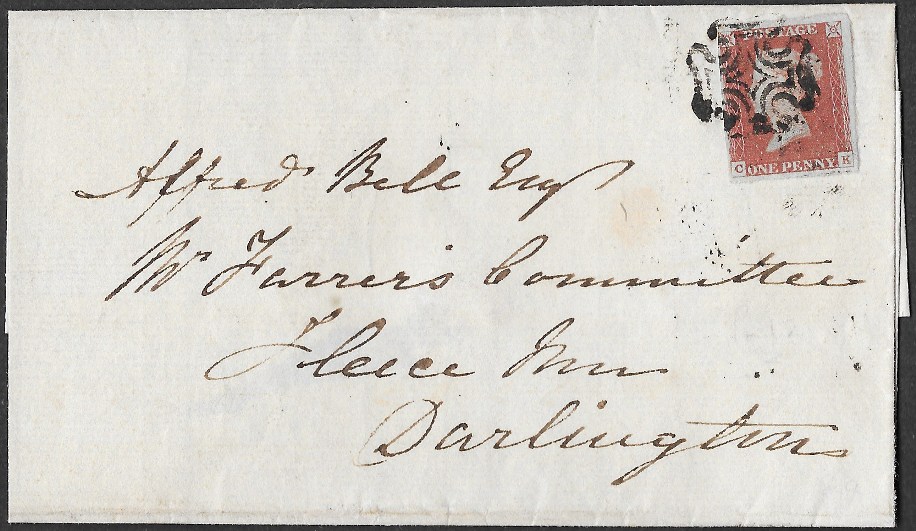 POSTAGE
C K
ONE PENNY
Alfred Bell Esqr
Mr Farrer's Committee
Fleece Inn
Darlington